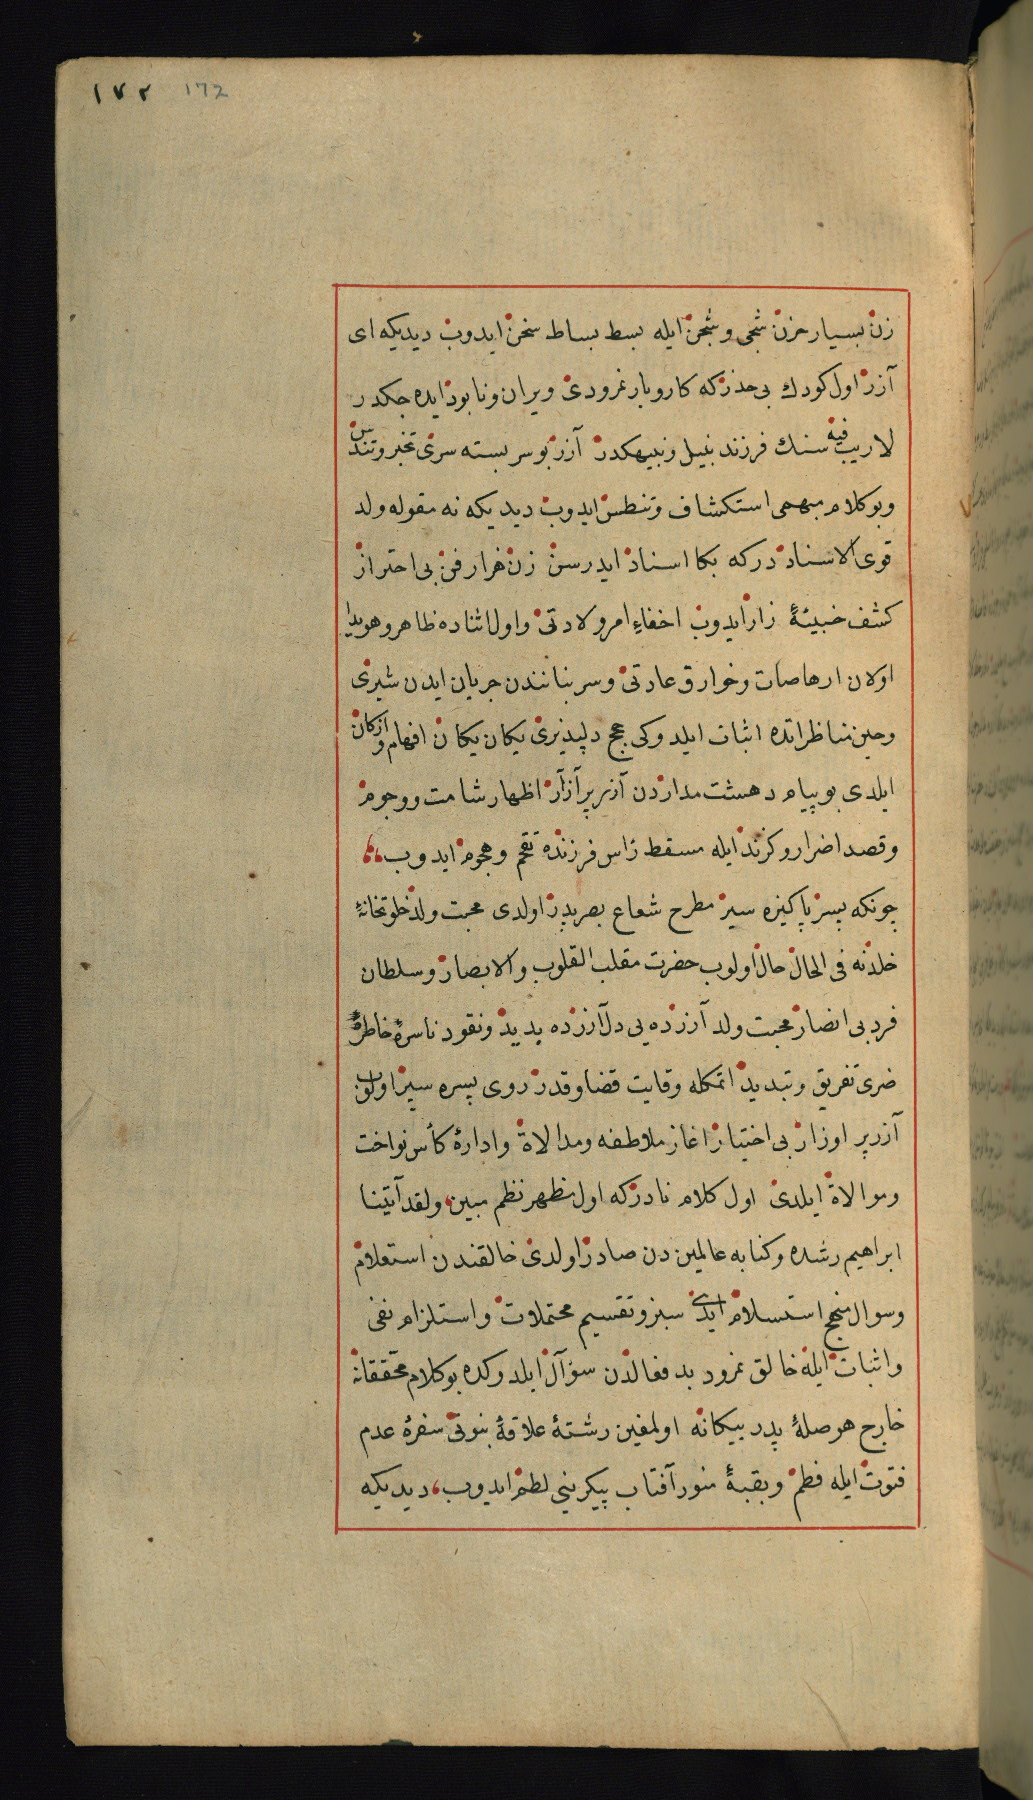 ١٧٢ 172
زن بسیار حزن شجی و شجن ایله بسط بساط سخن ایدوب دیدیکه ای
آزر اول کودك بی حذر که کاروبار نمرودی ویران و نابود ایده جکدر
لاریب فیه سنك فرزند نبیل و نبیهکدر آزر بو سر بسته سری تخبر و تندس
و بو کلام مبهمی استکشاف و تنطس ایدوب دیدیکه نه مقوله ولد
قوی الاسناد در که بکا اسناد ایدرسن زن هزار فن بی احتراز
کشف خبیئهٔ راز ایدوب اخفاء امر ولادتی و اول اثناده ظاهر و هویدا
اولان ارهاصات و خوارق عادتی و سر بنانندن جریان ایدن شیری
و حین تناظراتده اثبات ایلدوکی حجج دلپذیری یکان یکان افهام و ازکان
ایلدی بو پیام دهشت مداردن آزر پر آزار اظهار شامت و وجوم
و قصد اضرار و کزند ایله مسقط راس فرزنده تقحم و هجوم ایدوب
چونکه پسر پاکیزه سیر مطرح شعاع بصر پدر اولدی محبت ولد خلوتخانهٔ
خلدنه فی الحال حال اولوب حضرت مقلب القلوب والابصار و سلطان
فرد بی انصار محبت ولد آزرده یی دل آزرده پدید و نقود ناسرهٔ خاطرهٔ
ضری تفریق و تبدید اتمکله وقایت قضا و قدر روی پسره سپر اولوب
آزر پر اوزار بی اختیار اغاز ملاطفه و مدالاة و ادارهٔ کأس نواخت
و موالاة ایلدی اول کلام نادر که اول مظهر نظم مبین ولقد آتینا
ابراهیم رشده وکنا به عالمین دن صادر اولدی خالقندن استعلام
و سوال منهج استسلام ایدی سبر و تقسیم محتملات و استلزام نفی
و اثبات ایله خالق نمرود بد فعالدن سؤآل ایلدوکده بو کلام محققانه
خارج هوصلهٔ پدر بیکانه اولمغین رشتهٔ علاقهٔ بنوتی سفرهٔ عدم
فتوت ایله فطم و بقبهٔ منور آفتاب پیکرینی لطم ایدوب دیدیکه